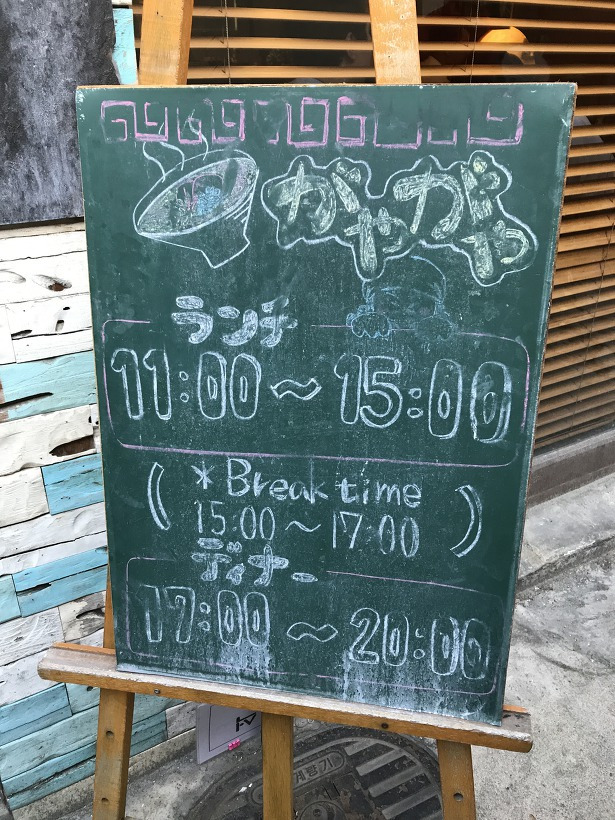 がやがや
ランチ
11:00～15:00
(*Break time
15:00～17:00)
ディナー
17:00～20:00